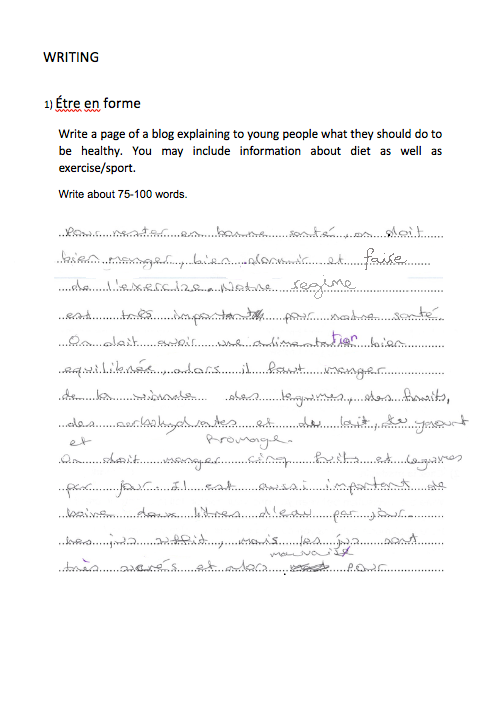 WRITING
1) Étre en forme
Write a page of a blog explaining to young people what they should do to
be healthy. You may include information about diet as well as
exercise/sport.
Write about 75-100 words.
Pour rester en bonne santé, on doit
bien manger, bien dormir et faire
de l'exercise. Notre regime
est très important pour notre santé.
On doit avoir une alimentation bien
equilibrée, alors il faut manger
de la viande des legumes, des fruits,
des carbohydrates et du lait, du yaourt
et fromage.
On doit manger cinq fruits et legumes
par jour. Il est aussi important de
boire deux litres d'eau par jour.
Les jus suffit, mais les jus sont
mauvais
très sucrés et alors pour